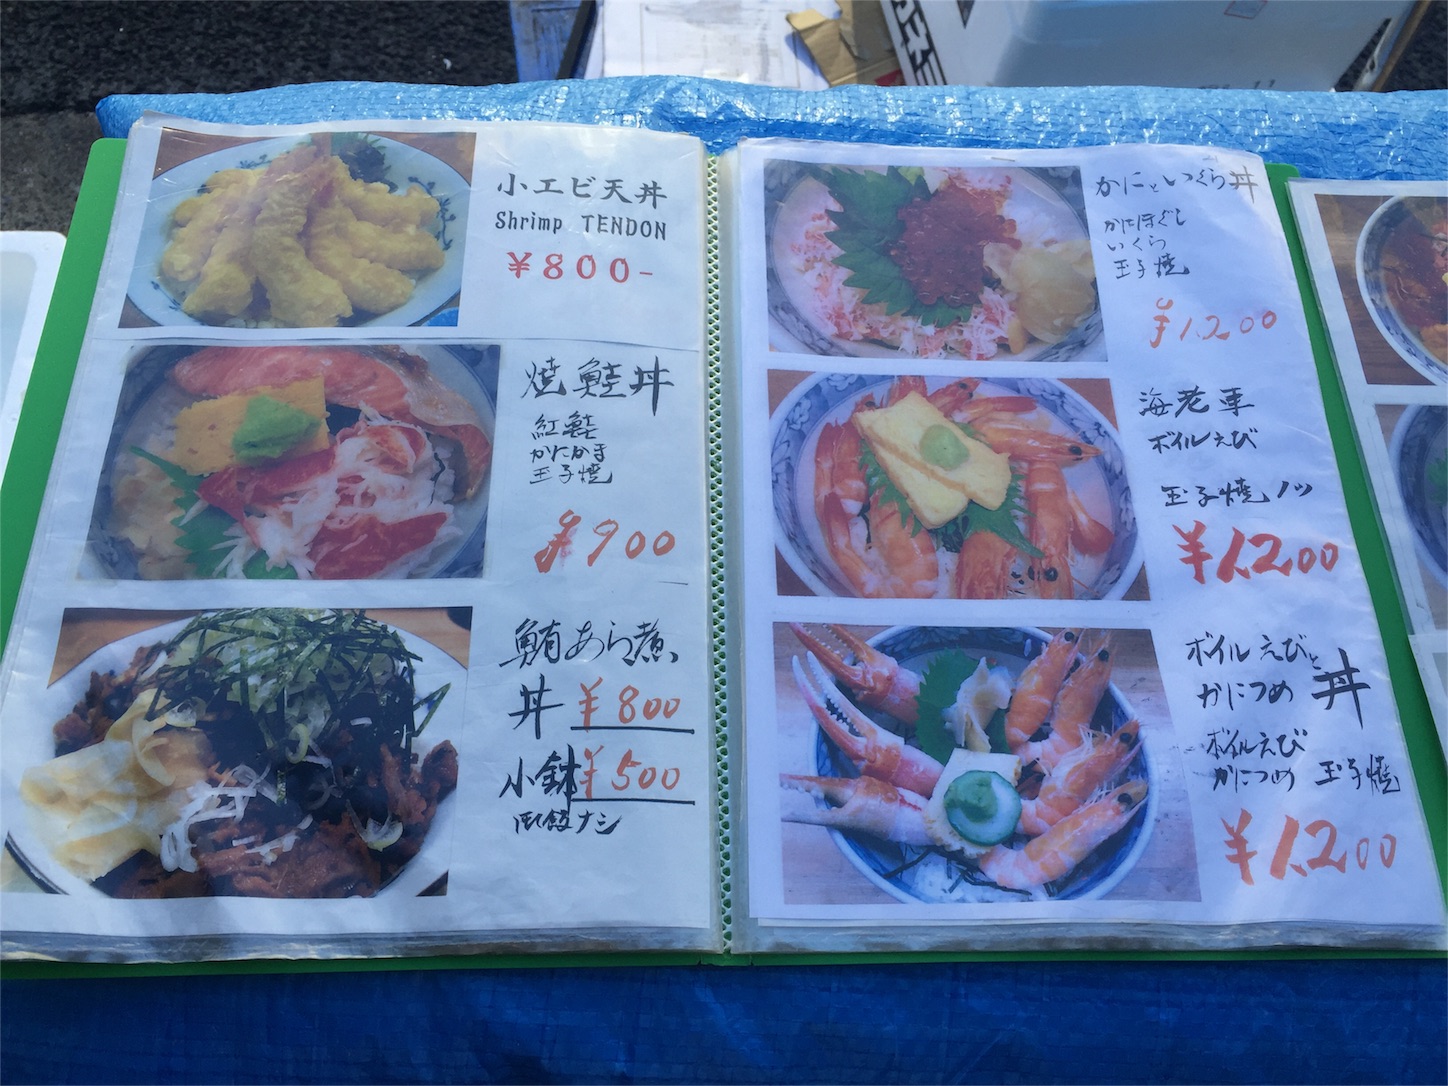 小エビ天丼
Shrimp TENDON
¥800-
焼鮭丼
紅鮭
かにかま
玉子焼
¥900
鮪あら煮
丼 ¥800
小鉢 ¥500
ナシ
かにといくら丼
かにほぐし
いくら
玉子焼
¥1.200
海老車
ボイルえび
玉子焼ノッ
¥1.200
ボイルえびと
かにつめ 丼
ボイルえび
かにつめ 玉子焼
¥1.200